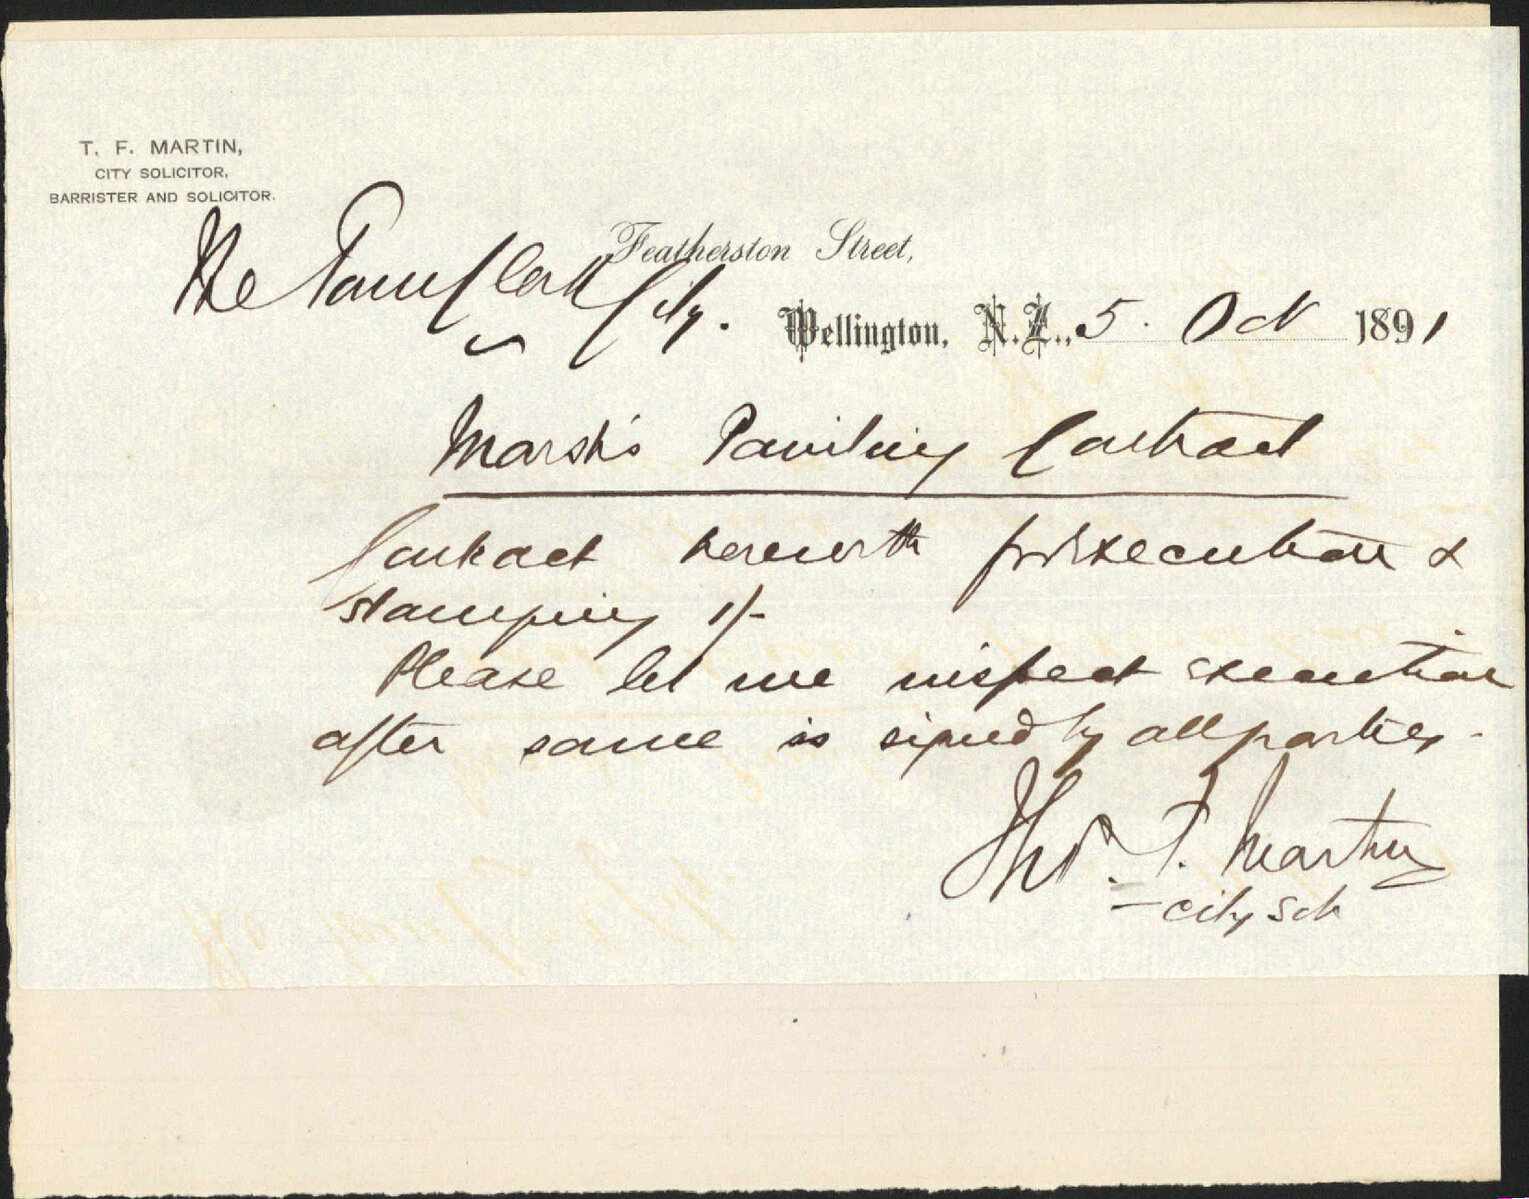 T. F. MARTIN,
CITY SOLICITOR,
BARRISTER AND SOLICITOR.
Featherston Street,
The Town Clerk
City.
Wellington, N.Z., 5. Oct 1891
Marsh's Painting Contract
Contract herewith for execution &
stamping 1/-
Please let me inspect execution
after same is signed by all parties -
Thos. F. Martin
- City Solr